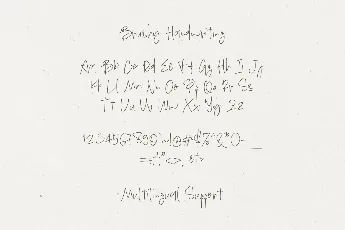 Handwriting
Aa Bb Cc Dd Ee Ff Gg Hh Ii Jj
Kk Ll Mm Nn Oo Pp Qq Rr Ss
Tt Uu Vv Ww Xx Yy Zz
1234567890
Multilingual Support